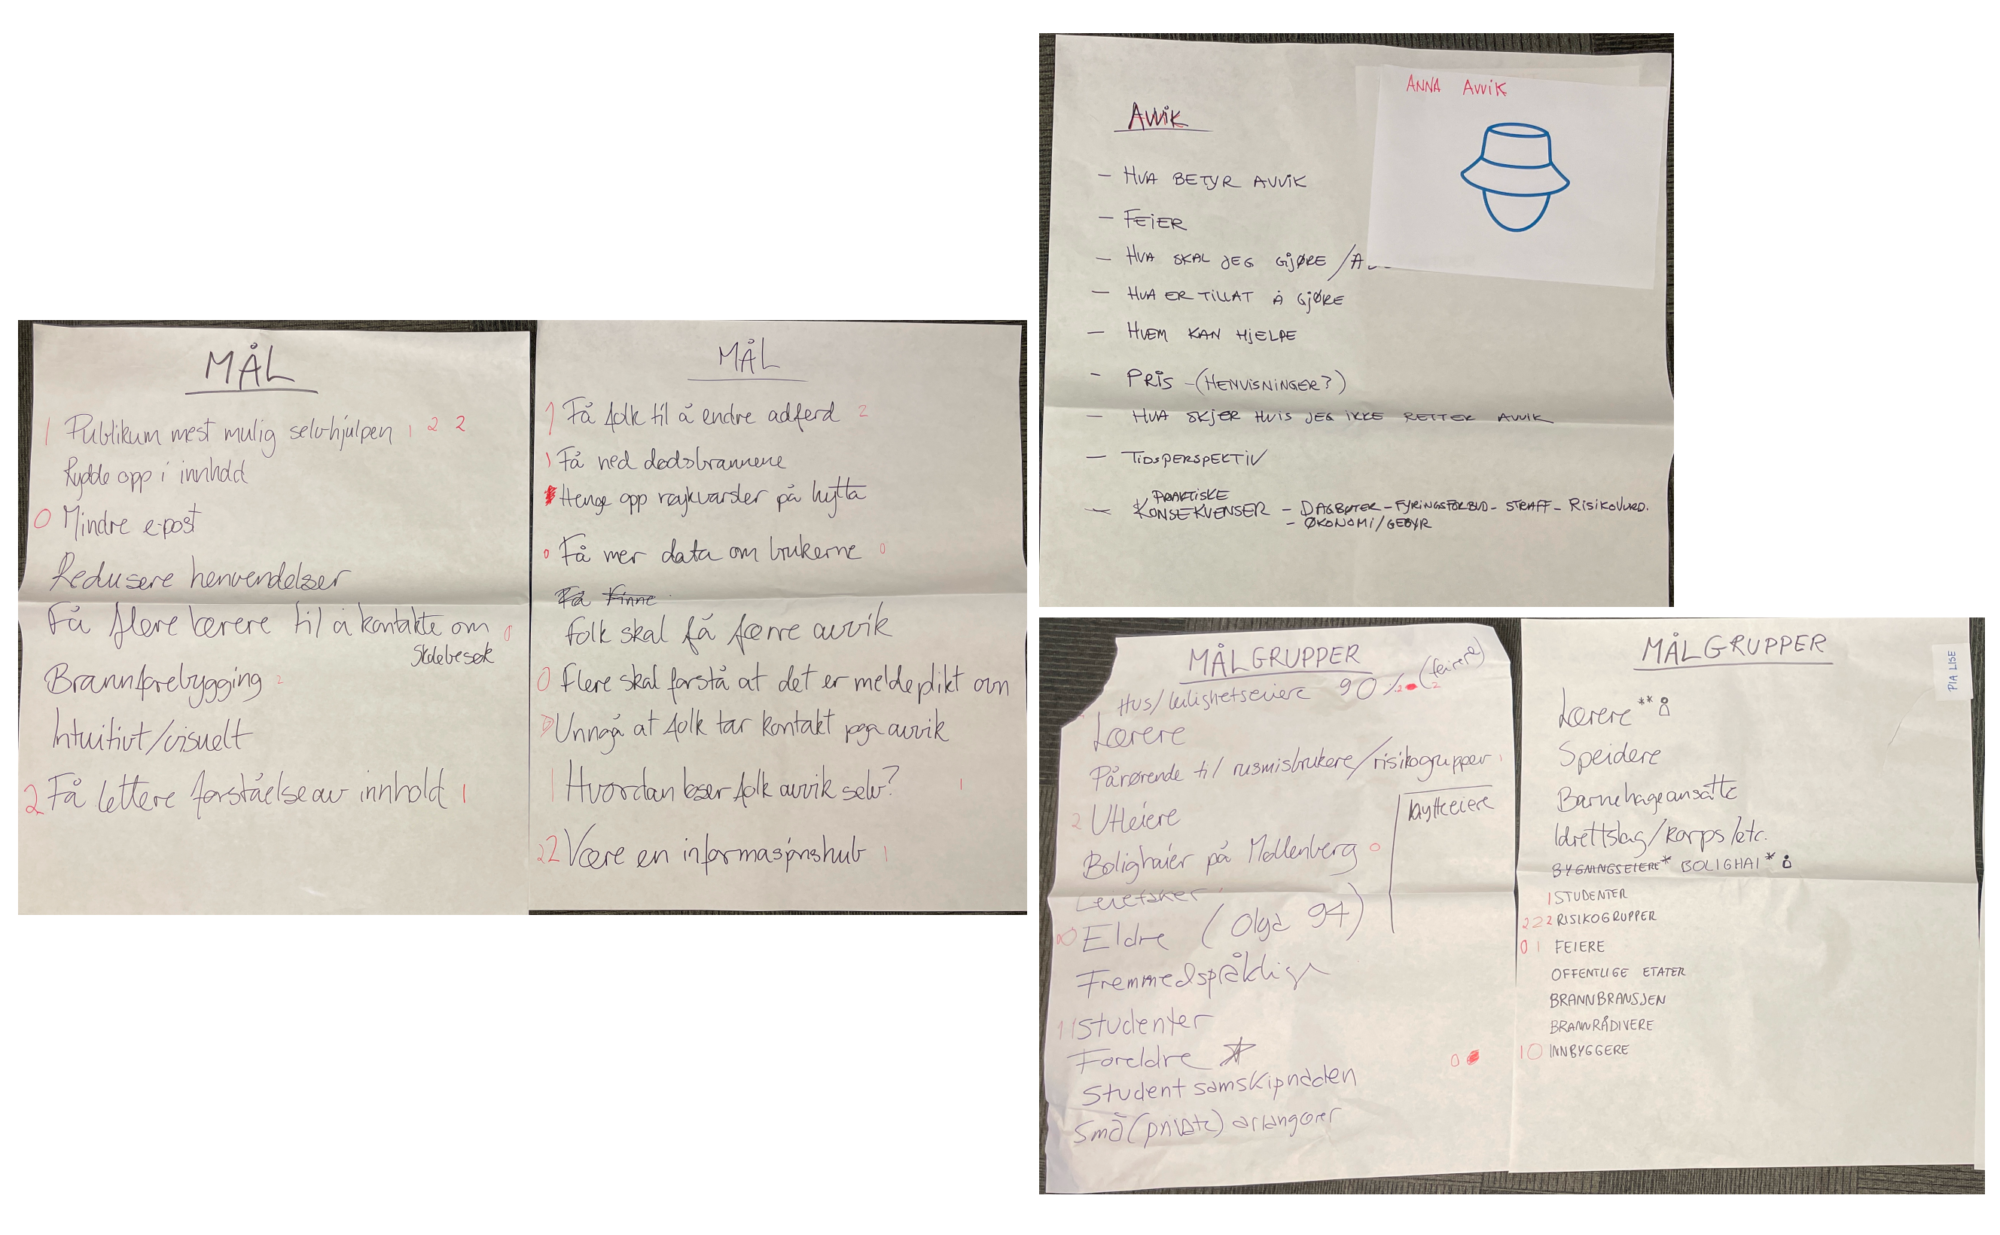 MÅL
1 Publikum mest mulig selvhjulpen 1 2 2
Rydde opp i innhold
0 Mindre e-post
Redusere henvendelser
Få flere lærere til å kontakte om 0
Skolebesøk
Brannforebygging 2
Intuitivt/visuelt
2 Få lettere forståelse av innhold 1
MÅL
1 Få folk til å endre adferd 2
1 Få ned dødsbrannene
Henge opp røykvarsler på hytta
0 Få mer data om brukerne 0
Få Finne
folk skal få færre avvik
0 flere skal forstå at det er meldeplikt om
Unngå at folk tar kontakt pga avvik
1 Hvordan løser folk avvik selv? 1
22 Være en informasjonshub 1
ANNA AVVIK
AVVIK
- HVA BETYR AVVIK
- FEIER
- HVA SKAL JEG GJØRE /
- HVA ER TILLAT Å GJØRE
- HVEM KAN HJELPE
- PRIS - (HENVISNINGER?)
- HVA SKJER HVIS JEG IKKE RETTER AVVIK
- TIDSPERSPEKTIV
PRAKTISKE
- KONSEKVENSER - DAGBØTER - FYRINGSFORBUD - STRAFF - RISIKOVURD.
- ØKONOMI/GEBYR
MÅLGRUPPER
Hus/leilighetseiere 90% 2 (feiere)
Lærere
Pårørende til rusmisbrukere/risikogrupper 1
2 Utleiere
hytteeiere
Bolighaier på Møllenberg 0
Leietaker
Eldre (Olga 94)
Fremmedspråklige
11 Studenter
Foreldre
0
Studentsamskipnaden
Små (private) arrangører
MÅLGRUPPER
PIA LISE
Lærere **
Speidere
Barnehageansatte
Idrettslag/korps/etc.
BYGNINGSEIERE* BOLIGHAI *
1 STUDENTER
222 RISIKOGRUPPER
0 1 FEIERE
OFFENTLIGE ETATER
BRANNBRANSJEN
BRANNRÅDIVERE
10 INNBYGGERE